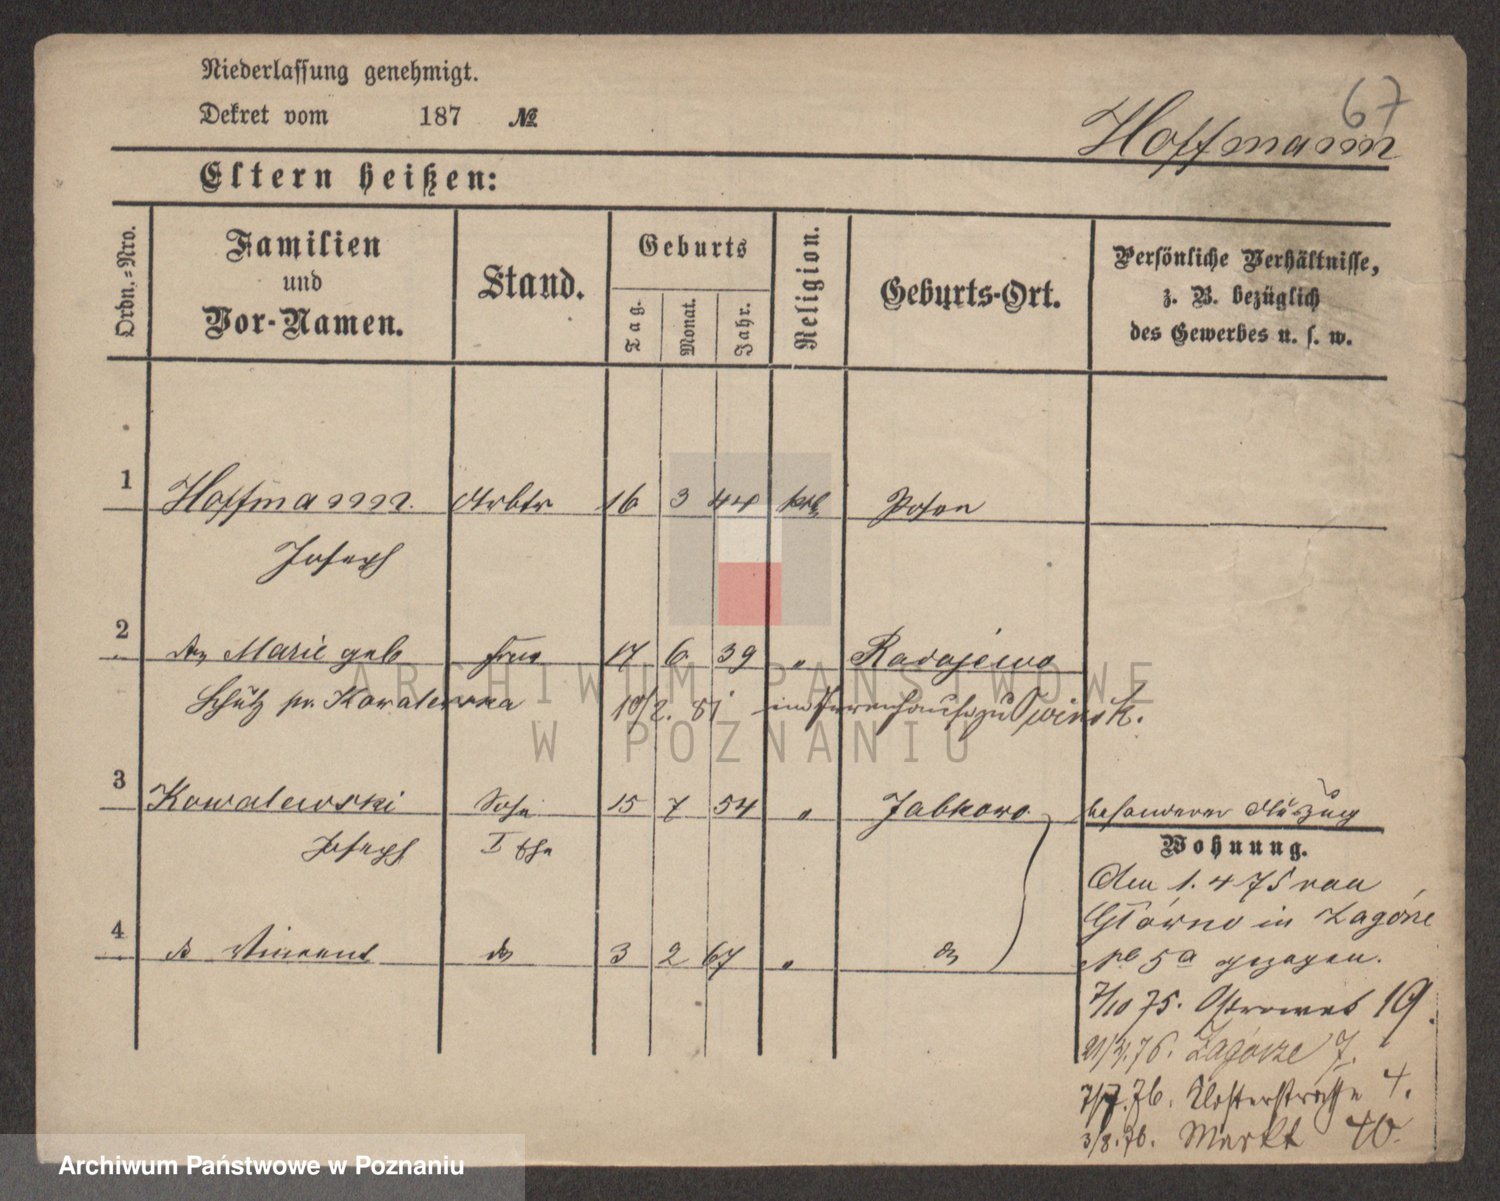 Niederlassung genehmigt.
Dekret vom 187 №
67
Hoffmann
Eltern heißen:
Ordn.=Nro.
Familien und Vor-Namen.
Stand.
Geburts
Tag.
Monat.
Jahr.
Religion.
Geburts-Ort.
Persönliche Verhältnisse,
z. B. bezüglich
des Gewerbes u. s. w.
1 Hoffmann Arbtr 16 3 44 kth Posen
Joseph
2 Marie geb Frau 17 6 39 " Radojewo
Schütz pr. Kowalewska 10/2. 81 im Irrenhause zu Owinsk.
3 Kowalewski Sohn 15 7 54 " Jabkowo besonderer Auszug
Joseph I Ehe
Wohnung.
Den 1. 4 75 von
Górno in Zagórze
4 do Vincent do 3 2 67 " do
No 5a gezogen.
7/10 75. Ostrowek 19.
21/3. 76. Zagórze 7.
7/7. 76. Klosterstrasse 4.
3/8. 76. Markt 40.
ARCHIWUM PAŃSTWOWE
W POZNANIU
Archiwum Państwowe w Poznaniu